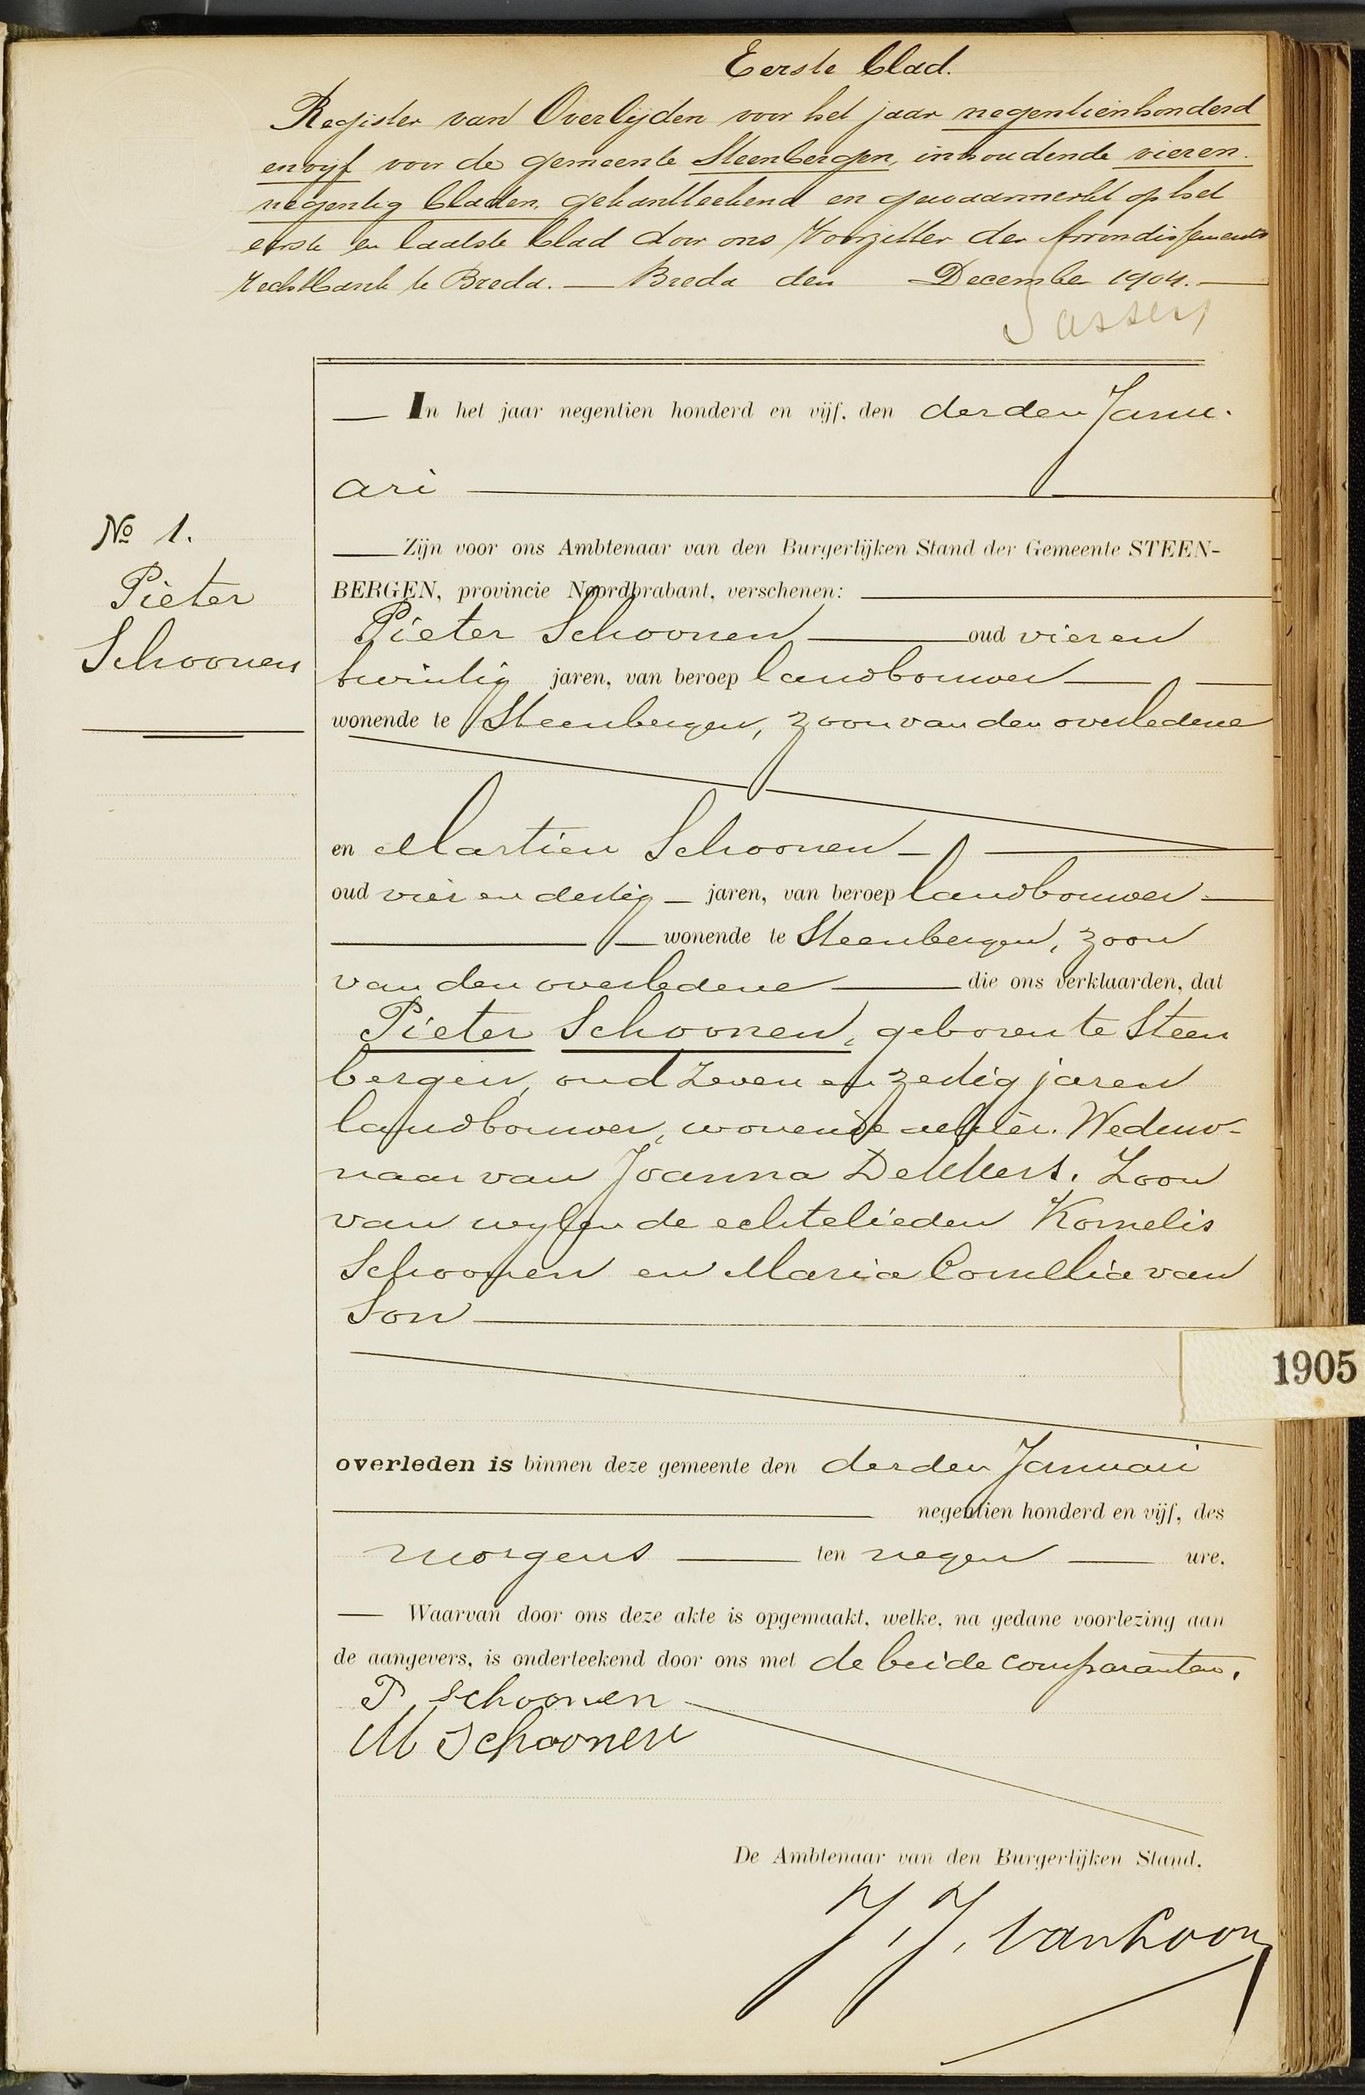 Eerste blad.
Register van Overlijden voor het jaar negentienhonderd
en vyf voor de gemeente Steenbergen, inhoudende vier en
negentig bladen, gekantteekend en gewaarmerkt op het
eerste en laatste blad door ons Voorzitter der Arrondissements
Rechtbank te Breda. — Breda den December 1904. —
In het jaar negentien honderd en vijf, den derden Janu-
ari
No 1.
Pieter
Schoonen
Zijn voor ons Ambtenaar van den Burgerlijken Stand der Gemeente STEEN-
BERGEN, provincie Noordbrabant, verschenen:
Pieter Schoonen oud vier en
twintig jaren, van beroep landbouwer
wonende te Steenbergen, zoon van den overledene
en Martien Schoonen
oud vier en dertig jaren, van beroep landbouwer
wonende te Steenbergen, zoon
van den overledene die ons verklaarden, dat
Pieter Schoonen, geboren te Steen
bergen, oud zeven en zestig jaren
landbouwer, wonende alhier. Weduw-
naar van Joanna Dekkers. Zoon
van wylen de echtelieden Kornelis
Schoonen en Maria Cornellia van
Son
1905
overleden is binnen deze gemeente den derden Januari
negentien honderd en vijf, des
morgens ten negen ure.
Waarvan door ons deze akte is opgemaakt, welke, na gedane voorlezing aan
de aangevers, is onderteekend door ons met de beide comparanten.
P Schoonen
M Schoonen
De Ambtenaar van den Burgerlijken Stand,
J. J. van Loon